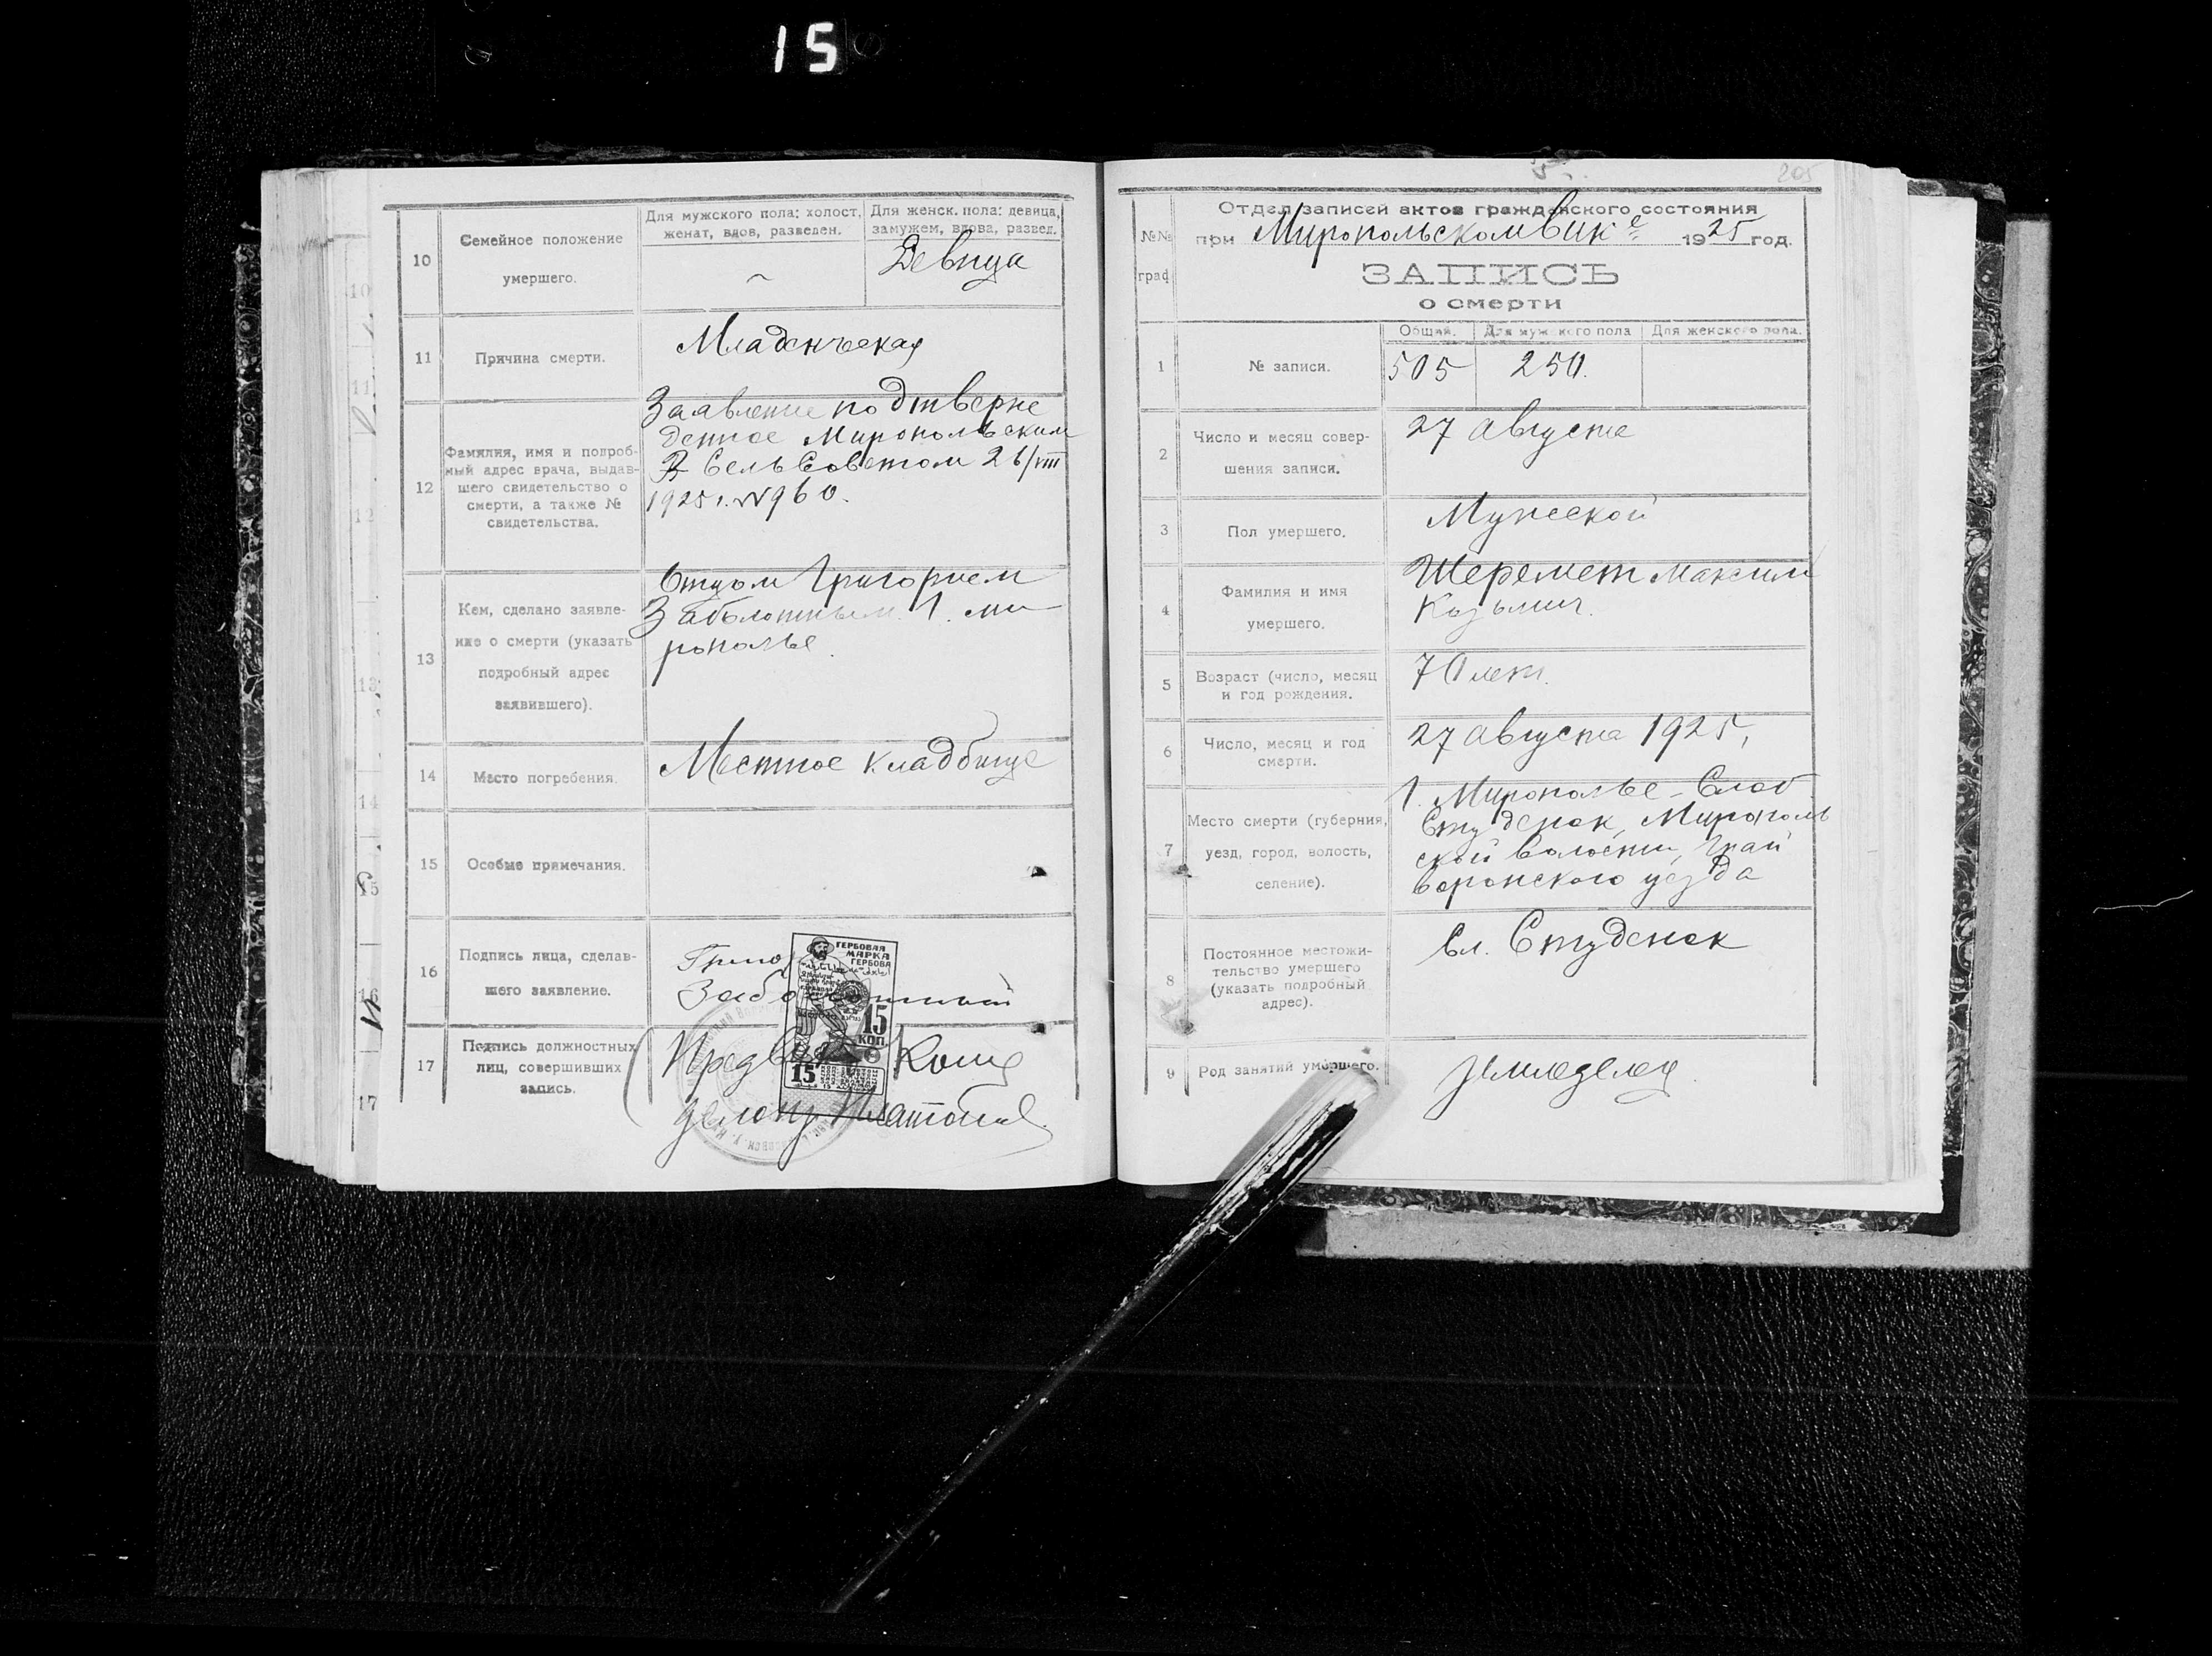 15
10
Семейное положение
умершего.
Для мужского пола: холост,
женат, вдов, разведен.
Для женск. пола: девица,
замужем, вдова, развед.
~
Девица
11
Причина смерти.
Младенческая
12
Фамилия, имя и подроб-
ный адрес врача, выдав-
шего свидетельство о
смерти, а также №
свидетельства.
Заявление подтверже
денное Миропольским
СельСоветом 26/VIII
1925 г. № 960.
13
Кем, сделано заявле-
ние о смерти (указать
подробный адрес
заявившего).
Отцом Григорием
Заболотным. Г. Ми
рополье.
14
Место погребения.
Местное кладбище
15
Особые примечания.
16
Подпись лица, сделав-
шего заявление.
Григо
Заболотный
ГЕРБОВАЯ
МАРКА
ГЕРБОВА
15
КОП.
15
17
Подпись должностных
лиц, совершивших
запись.
Предв
делопр Платонов
205
№№
граф
Отдел записей актов гражданского состояния
при Миропольском Вике 1925 год.
ЗАПИСЬ
о смерти
1
№ записи.
Общий.
Для мужского пола
Для женского пола.
505
250.
2
Число и месяц совер-
шения записи.
27 августа
3
Пол умершего.
Мужской
4
Фамилия и имя
умершего.
Шеремет Максим
Козьмич.
5
Возраст (число, месяц
и год рождения.
70 лет.
6
Число, месяц и год
смерти.
27 августа 1925,
7
Место смерти (губерния,
уезд, город, волость,
селение).
Г. Мирополье - Слоб
Студенок, Мирополь
ской волости, Грай
воронского уезда
8
Постоянное местожи-
тельство умершего
(указать подробный
адрес).
Сл. Студенок
9
Род занятий умершего.
земледелец